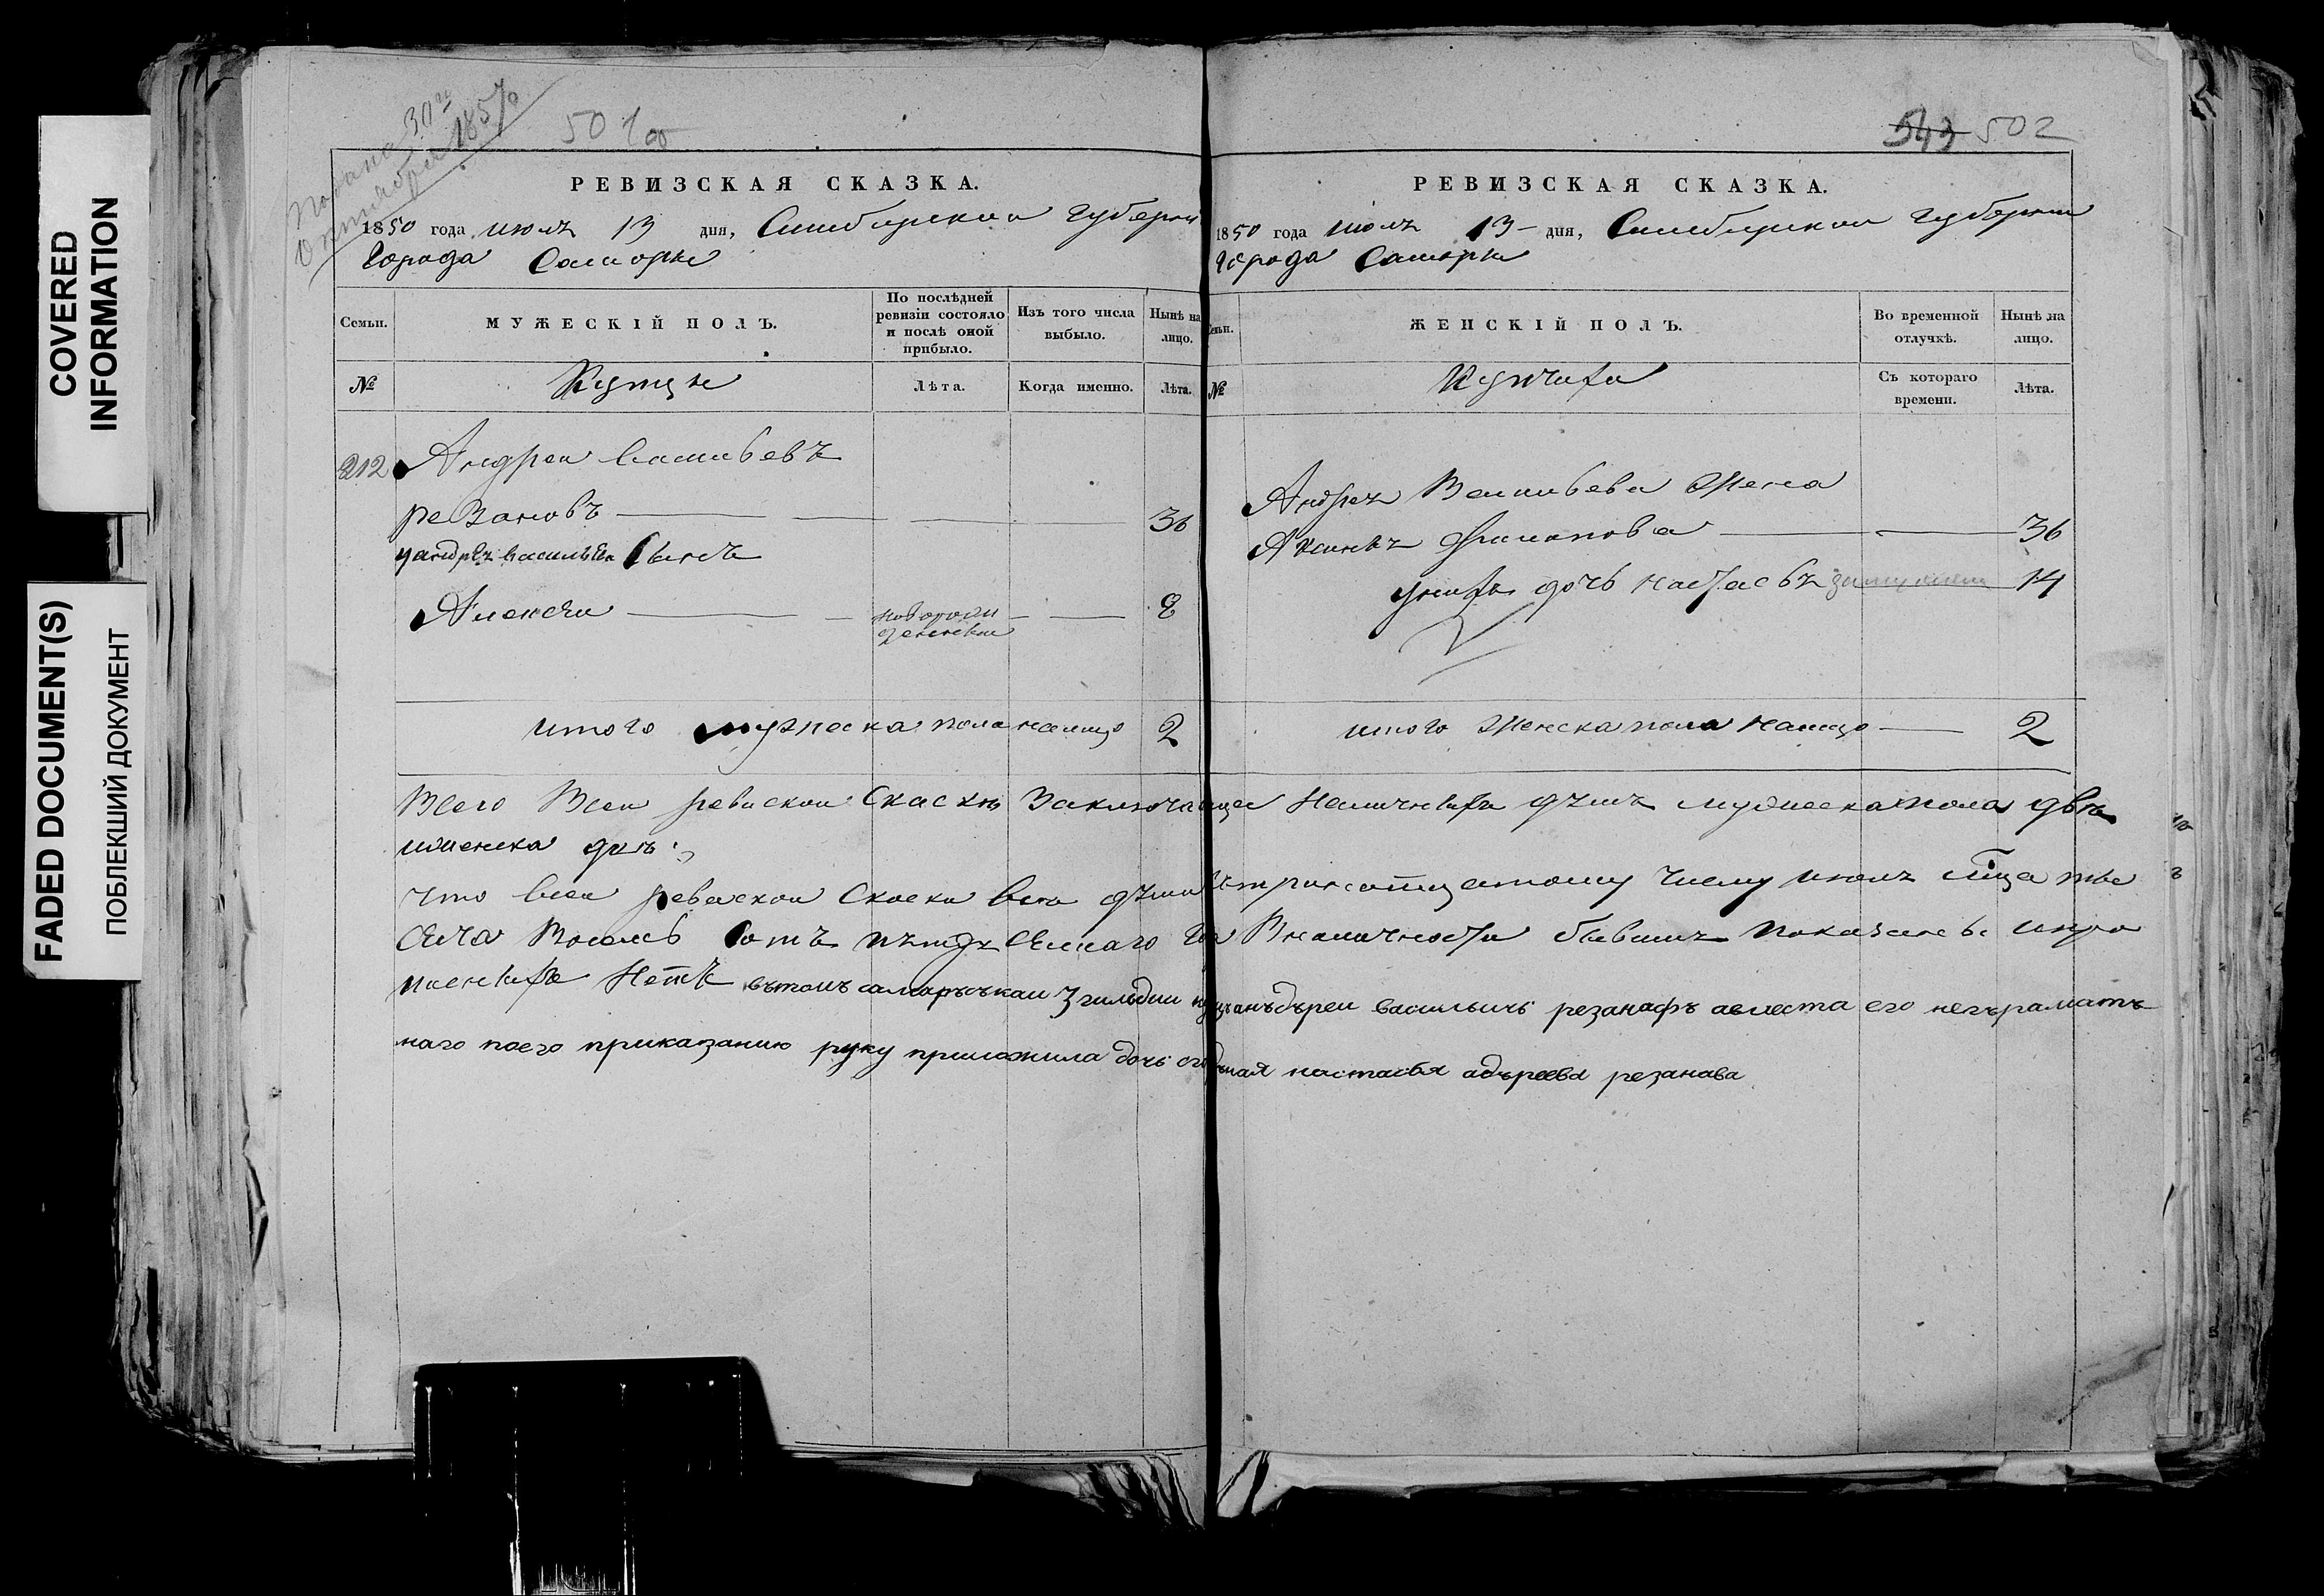 COVERED
INFORMATION
FADED DOCUMENT(S)
ПОБЛЕКШИЙ ДОКУМЕНТ
Подана 30го
Октября 1850
501об
РЕВИЗСКАЯ СКАЗКА.
1850 года июля 13 дня, Симбирскои губерни
города Саморы
Семьи.
МУЖЕСКІЙ ПОЛЪ.
По послѣдней ревизіи состояло и послѣ оной прибыло.
Изъ того числа выбыло.
Нынѣ на лицо.
№
Купцы
Лѣта.
Когда именно.
Лѣта.
212 Андреи Васильевъ
резановъ 36
Сынъ
Алексеи новорожденныи 8
итого мужеска пола налицо 2
543 502
РЕВИЗСКАЯ СКАЗКА.
1850 года июля 13 дня, Симбирскои губерни
города Саморы
Семьи.
ЖЕНСКІЙ ПОЛЪ.
Во временной отлучкѣ.
Нынѣ на лицо.
№
Купчихи
Съ котораго времени.
Лѣта.
Андрея Васильева Жена
36
унихъ дочь Настасья замужем 14
итого Женска пола налицо 2
Всего Всеи ревиской Скаскѣ Заключающеи Наличныхъ душъ мужеска пола двѣ
иженска двѣ
что всеи ревискои Скаски всѣ души числу июля мца ты
сяча Восемь Сотъ Вналичности бывшия показаны ипро
писныхъ Нетъ вътомъ самарьскаи 3 гильдии купецъ анъдъреи васильичь резанафъ авместа его неграматъ
наго поего приказанию руку приложила дочь его настасья адъреева резанава